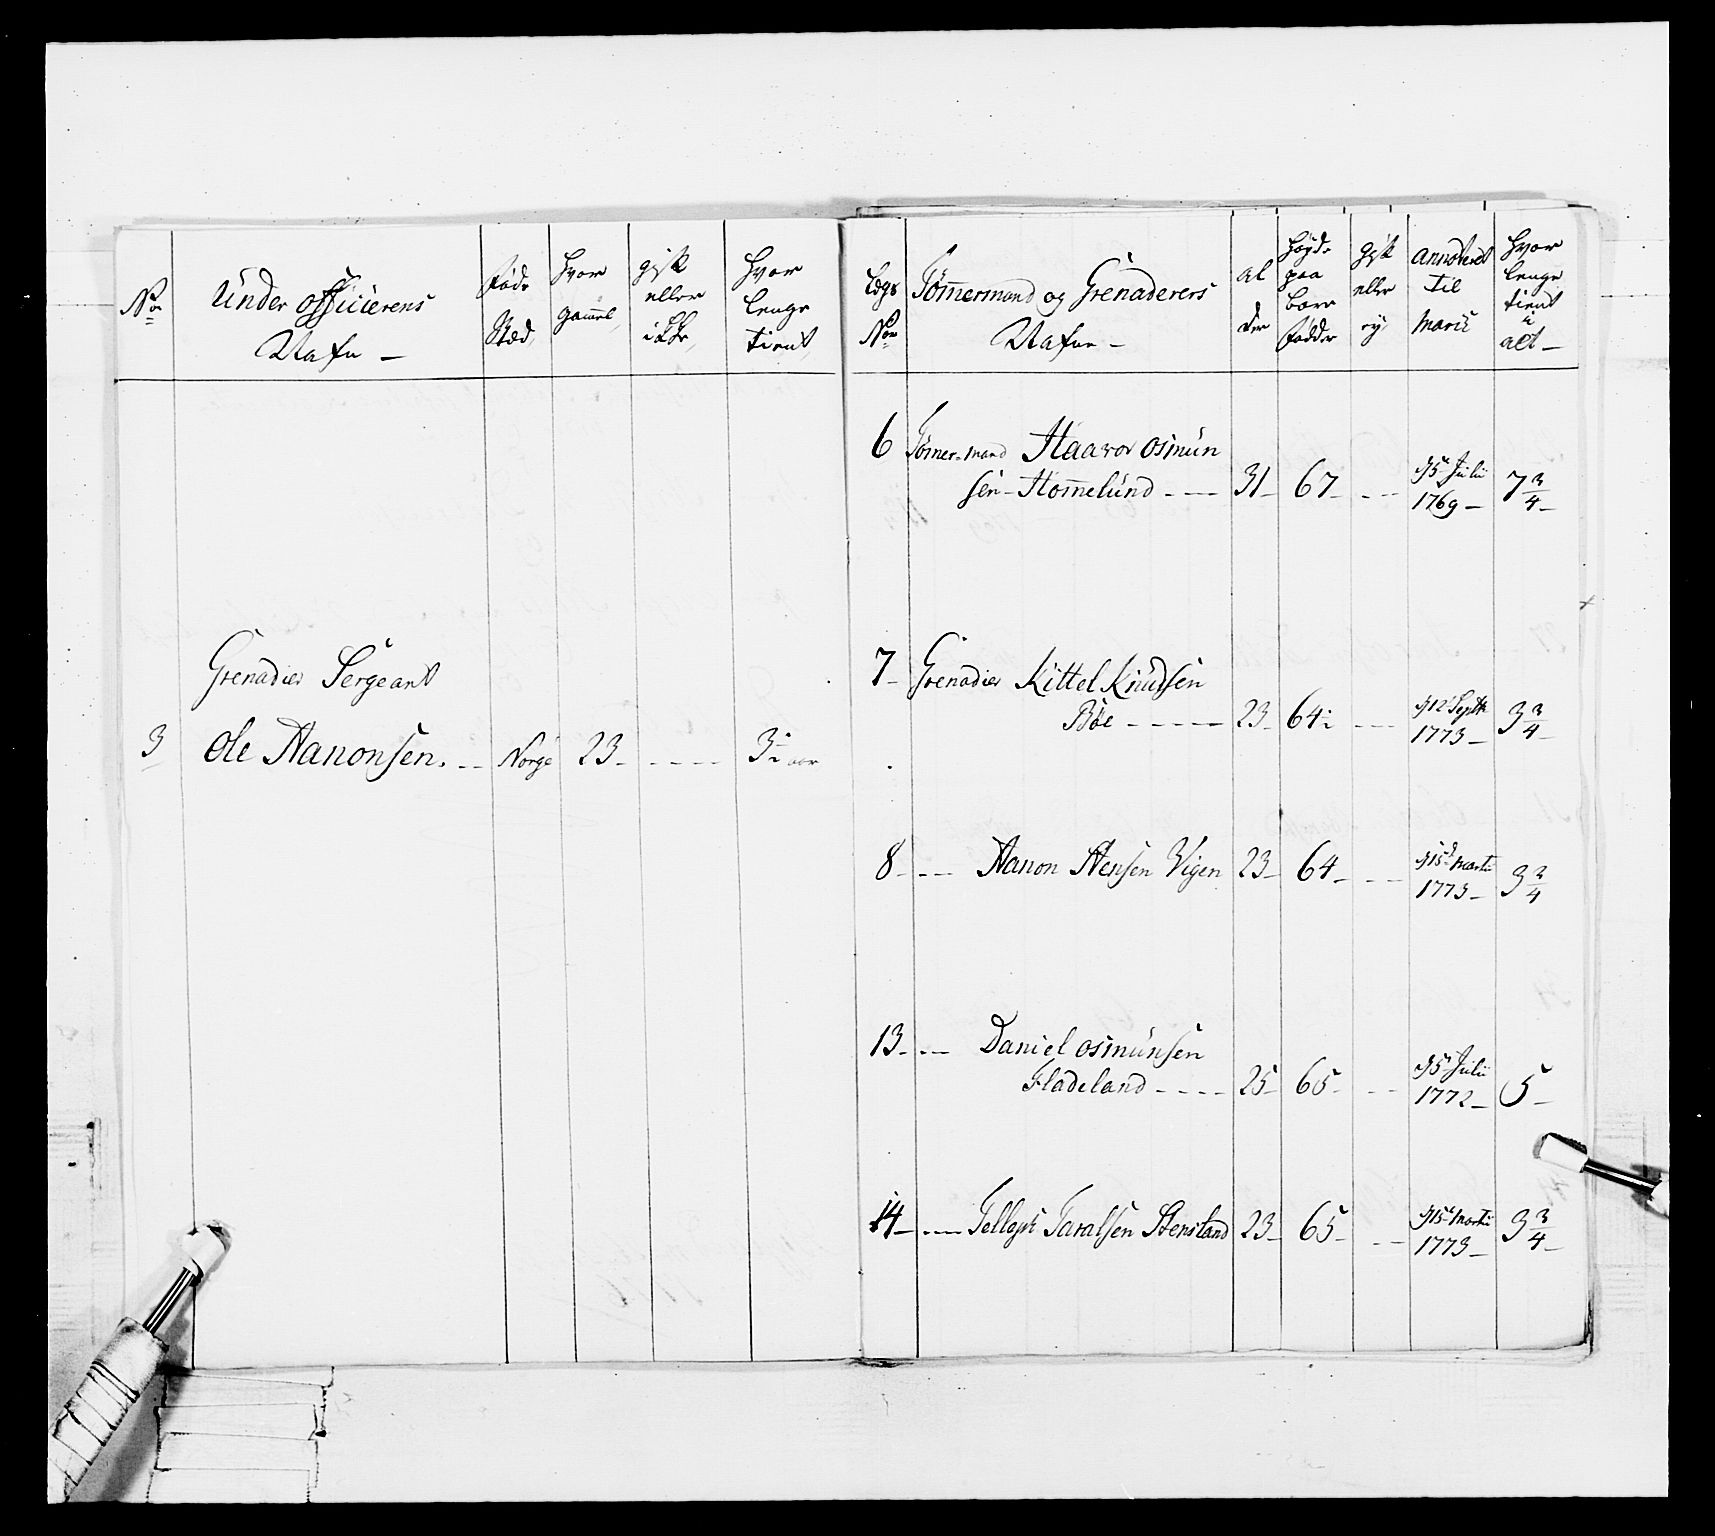 No
Under officierens
Nafn —
Føde
Stæd,
hvor
gammel,
gift
eller
ikke,
hvor
lenge
tient,
Grenadier Sergeant
3 Ole Aanonsen. — Norge 23 — - - - - 3½ aar
Legs
No
Tømermand og Grenaderers
Nafne —
al
der
høyde
paa
bare
fødder
gift
eller
ey
annoteret
til
Marii
hvor
lenge
tient
i
alt —
6 Tømer-mand Haavor Osmun
sen - Homelund - - - 31 — 67 — - - - d 5te Julii
1769 — 7 3/4 —
7 — Grenadier Kittel Knudsen
Bøe - - - - - 23 64½ - - - d 12te Septr
1773 — 3 3/4 —
8 - - - Aanon Stensen Vigen 23 — 64 — - - - d 15de Martii
1773 — 3 3/4
13 - - - Daniel Osmunsen
Fladeland - - - - 25 — 65 — - - - d 5te Julii
1772 — 5 —
14 — - - - Tellef Taralsen Stensland 23 — 65 — - - - d 15de Martii
1773 — 3 3/4 —